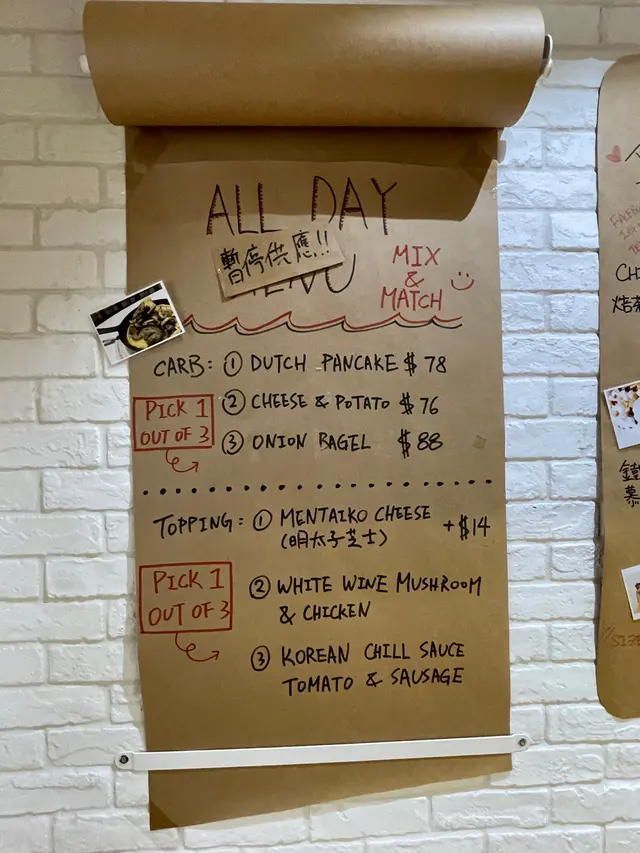 ALL DAY
暫停供應!!
MENU
MIX
&
MATCH
CARB: ① DUTCH PANCAKE $ 78
② CHEESE & POTATO $ 76
③ ONION BAGEL $ 88
PICK 1
OUT OF 3
TOPPING: ① MENTAIKO CHEESE +$14
(明太子芝士)
② WHITE WINE MUSHROOM
& CHICKEN
PICK 1
OUT OF 3
③ KOREAN CHILL SAUCE
TOMATO & SAUSAGE